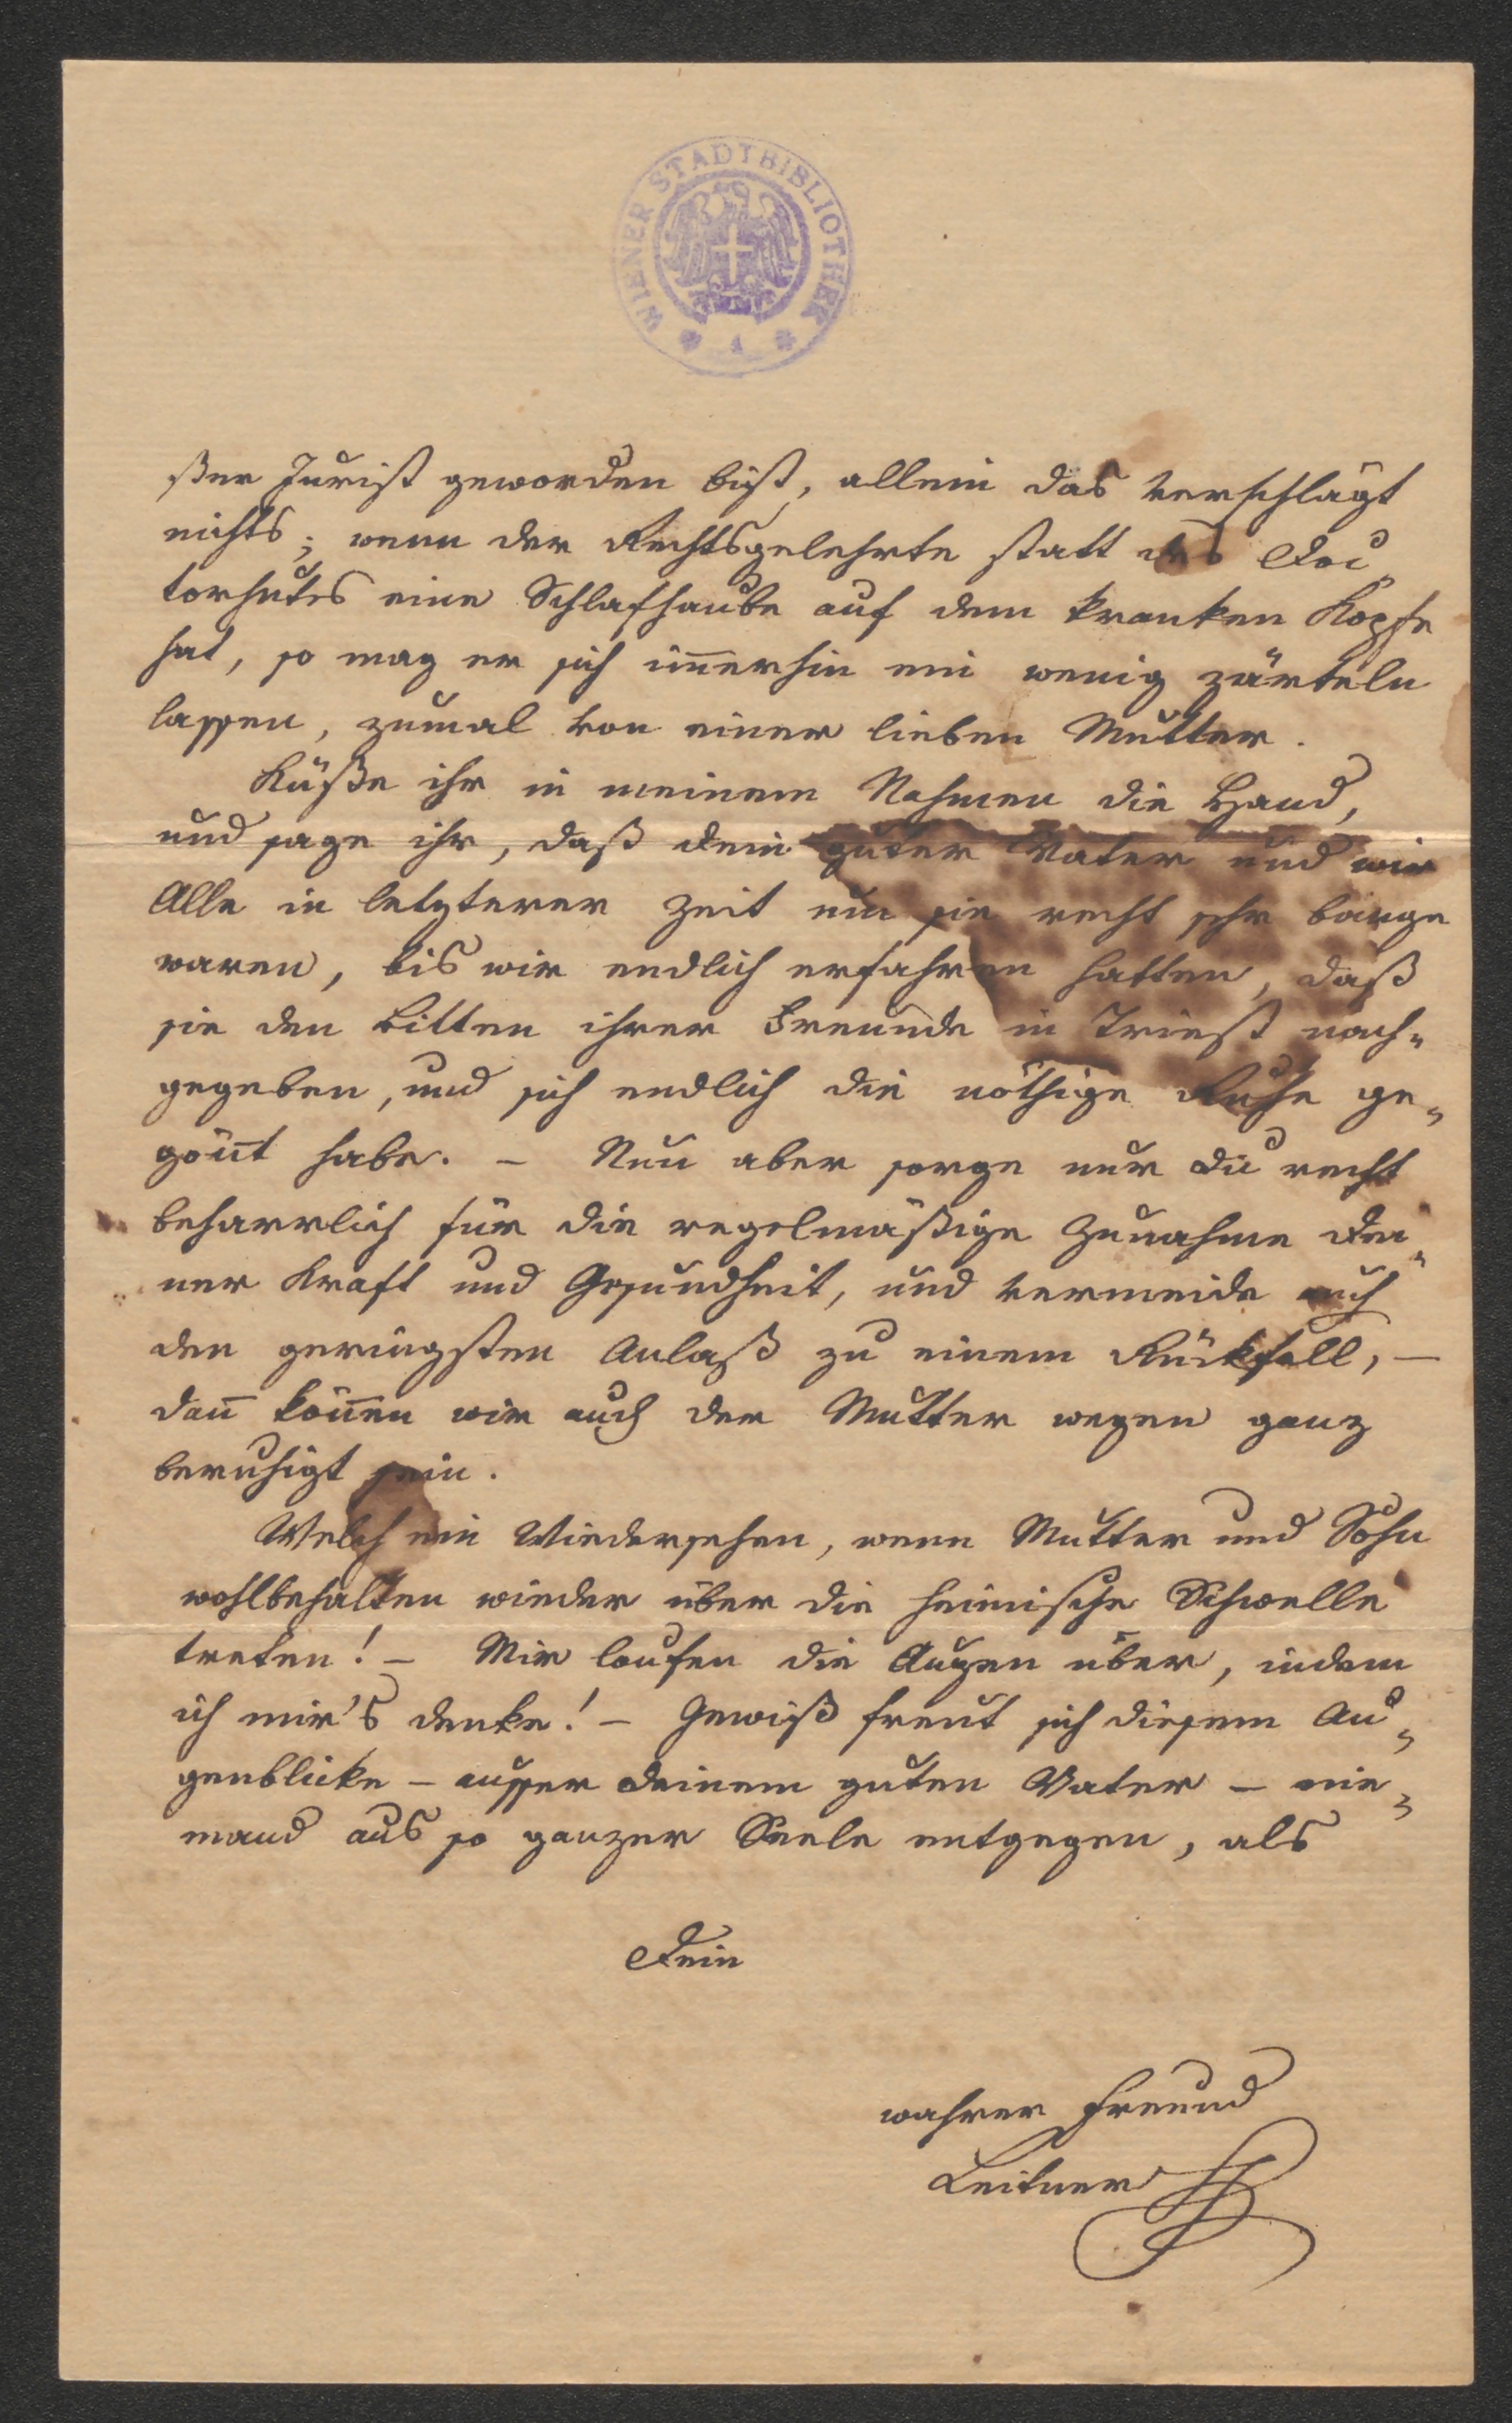 WIENER STADTBIBLIOTHEK
A
ßer Jurist geworden bist, allein das verschlägt
nichts; wenn der Rechtsgelehrte statt des Doc„
torhutes eine Schlafhaube auf dem kranken Kopfe
hat, so mag er sich im̅erhin ein wenig zärteln
lassen, zumal von einer lieben Mutter.
Küße ihr in meinem Nahmen die Hand,
und sage ihr, daß dein guter Vater und wir
Alle in letzterer Zeit um sie recht sehr bange
waren, bis wir endlich erfahren hatten, daß
sie den Bitten ihrer Freunde in Triest nach„
gegeben, und sich endlich die nöthige Ruhe ge„
gön̅t habe. – Nun aber sorge nur du recht
beharrlich für die regelmäßige Zunahme dei„
ner Kraft und Gesundheit, und vermeide auch
den geringsten Anlaß zu einem Rückfall, –
dan̅ kön̅en wir auch der Mutter wegen ganz
beruhigt sein.
Welch ein Wiedersehen, wenn Mutter und Sohn
wohlbehalten wieder über die heimische Schwelle
treten! – Mir laufen die Augen über, indem
ich mir's denke! – Gewiß freut sich diesem Au„
genblicke – ausser deinem guten Vater – nie„
mand aus so ganzer Seele entgegen, als
Dein
wahrer Freund
Leitner